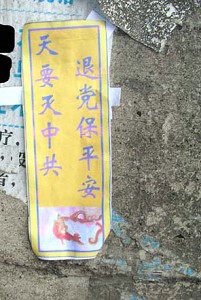 天要灭中共
退党保平安
疗,